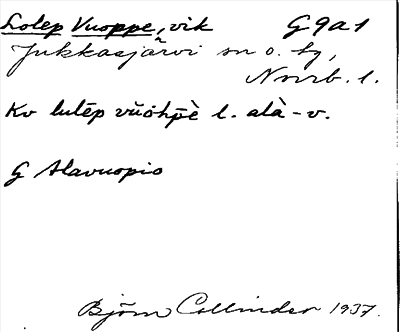 Lolep Vuoppe, vik G9a1
Jukkasjärvi sn o. tg,
Norrb. l.
Kv lulēp vŭo̊hp̄è l. alà-v.
G Alavuopio
Björn Collinder 1937.